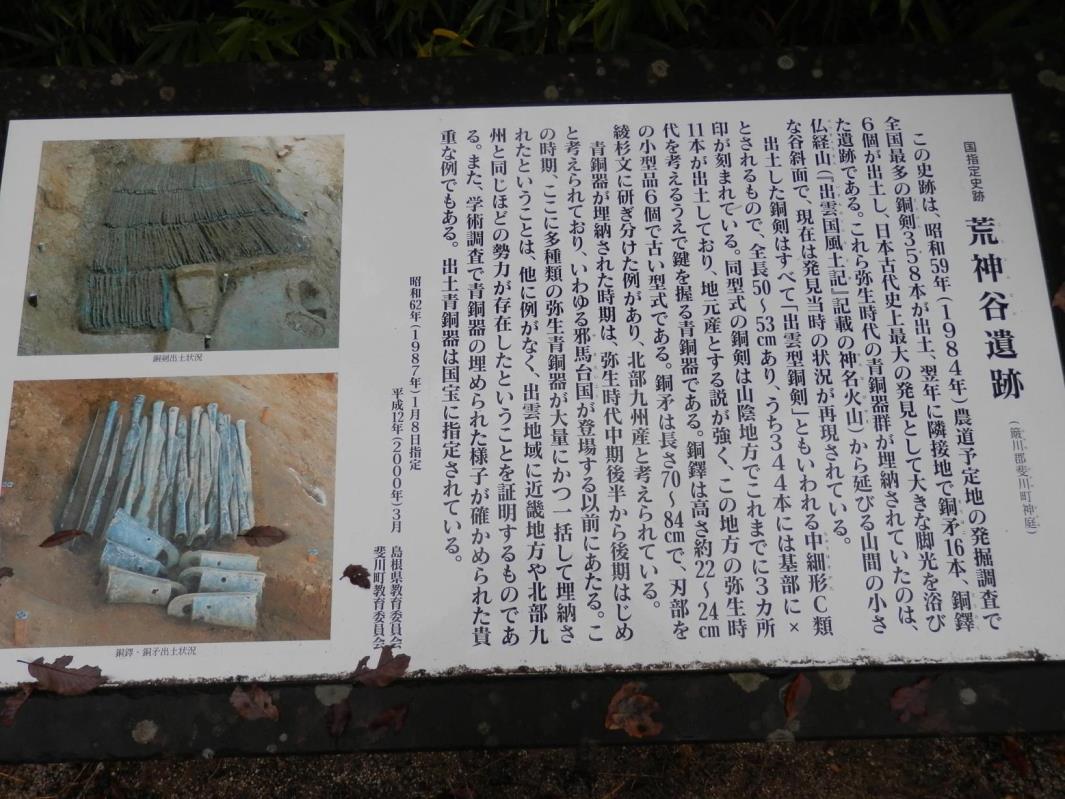 国指定史跡 荒神谷遺跡 (簸川郡斐川町神庭)
この史跡は、昭和59年(1984年)農道予定地の発掘調査で
全国最多の銅剣358本が出土、翌年に隣接地で銅矛16本、銅鐸
6個が出土し、日本古代史上最大の発見として大きな脚光を浴び
た遺跡である。これら弥生時代の青銅器群が埋納されていたのは、
仏経山(『出雲国風土記』記載の神名火山)から延びる山間の小さ
な谷斜面で、現在は発見当時の状況が再現されている。
出土した銅剣はすべて「出雲型銅剣」ともいわれる中細形C類
とされるもので、全長50〜53㎝あり、うち344本には基部に×
印が刻まれている。同型式の銅剣は山陰地方でこれまでに3カ所
11本が出土しており、地元産とする説が強く、この地方の弥生時
代を考えるうえで鍵を握る青銅器である。銅鐸は高さ約22〜24㎝
の小型品6個で古い型式である。銅矛は長さ70〜84㎝で、刃部を
綾杉文に研ぎ分けた例があり、北部九州産と考えられている。
青銅器が埋納された時期は、弥生時代中期後半から後期はじめ
と考えられており、いわゆる邪馬台国が登場する以前にあたる。こ
の時期、ここに多種類の弥生青銅器が大量にかつ一括して埋納さ
れたということは、他に例がなく、出雲地域に近畿地方や北部九
州と同じほどの勢力が存在したということを証明するものであ
る。また、学術調査で青銅器の埋められた様子が確かめられた貴
重な例でもある。出土青銅器は国宝に指定されている。
昭和62年(1987年)1月8日指定
平成12年(2000年)3月
島根県教育委員会
斐川町教育委員会
銅剣出土状況
銅鐸・銅矛出土状況